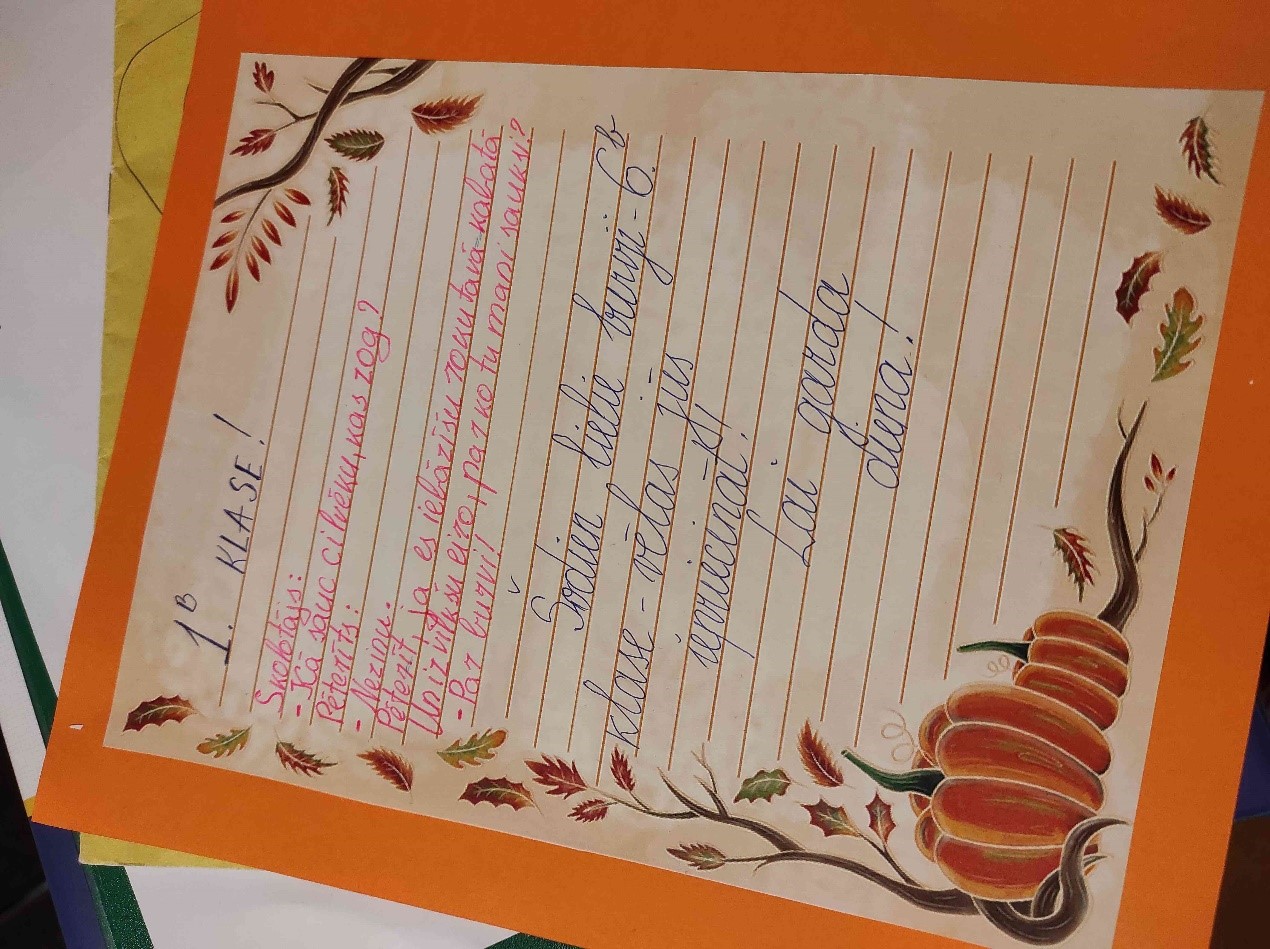 1.B KLASE!
Skolotājs:
- Kā sauc cilvēku, kas zog?
Pēterīts:
- Nezinu.
Pēterīt, ja es iebāzīšu roku tavā kabatā
Un izvilkšu eiro, par ko tu mani sauksi?
- Par burvi!
Šodien lielie burvji - 6.b
klase - vēlas jūs
iepriecināt!
Lai garda
diena!